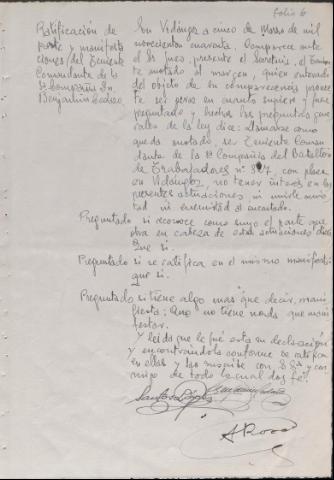 folio 6
Ratificación de
parte y manifesta
ciones del Teniente
Comandante de la
1ª Compañía Dn.
Benjamín
En Vidángoz a cinco de Marzo de mil
novecientos cuarenta. Comparece ante
el Sr Juez, presente el Secretario, el
anotado al margen, quien enterado
del objeto de su comparecencia promete
ser veraz en cuanto supiere y fuere
preguntado y hechas las preguntas gene
rales de la ley dice: llamarse como
queda anotado, ser Teniente Coman
dante de la 1ª Compañía del Batallón
de Trabajadores nº 127, con plaza
en Vidángoz, no tener interés en las
presentes actuaciones ni amis
tad ni enemistad al encartado.
Preguntado si reconoce como suyo el parte que
obra en cabeza de estas actuaciones dice:
Que si.
Preguntado si se ratifica en el mismo manifestó:
que si.
Preguntado si tiene algo mas que decir, mani
fiesta: Que no tiene nada que mani
festar.
Y leida que le fué esta su declaración
y encontrándola conforme se ratifica
en ella y la suscribe con S.Sª y con
migo de todo lo cual doy fé.